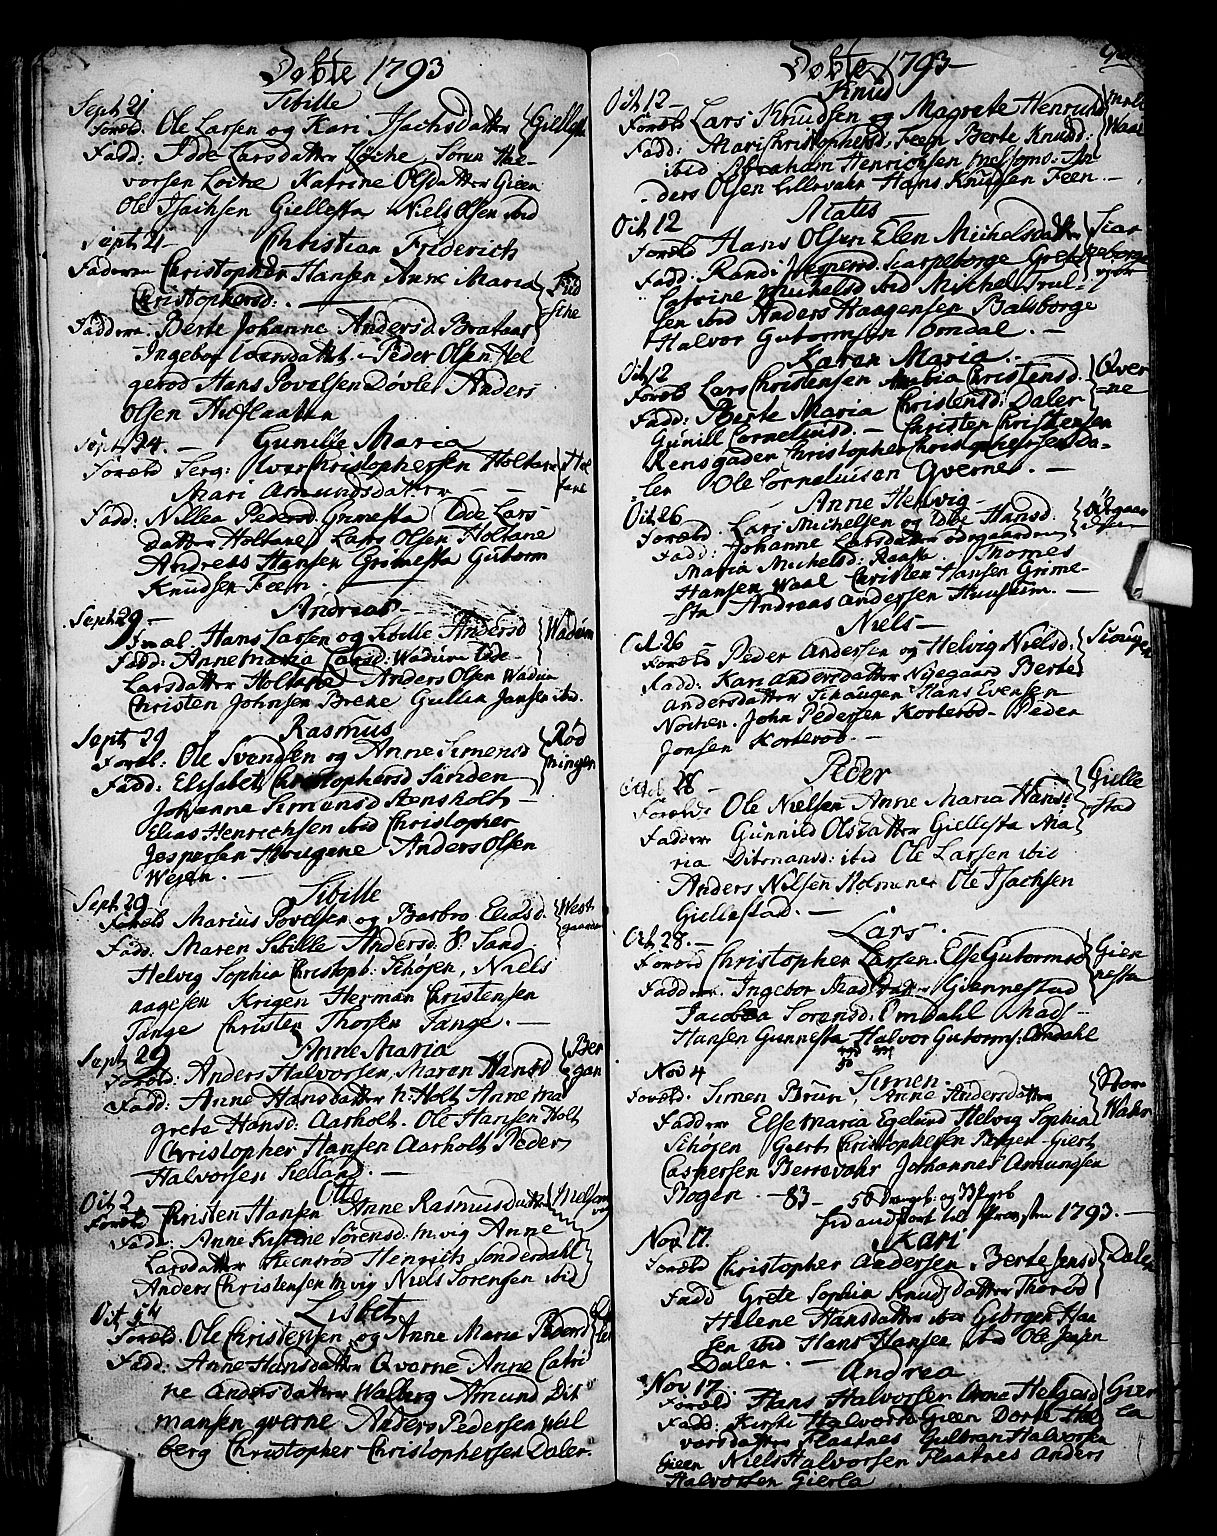 Døbte 1793
Sept 21 Sibille
Foreld. Ole Larsen og Kari Isachsdatter Giellesta
Fadd: Idde Larsdatter Løche, Søren Hal-
vorsen Løche Katrine Olsdatter Gieen
Ole Isachsen Giellesta Niels Olsen ibid
Sept 21 Christian Friderich
Faderen Christopher Hansen Anne Maria
Christophersd:
Faddere. Berte Johanne Andersd. Brataas
Ingebor Larsdatt. Peder Olsen Hel
gerød Hans Povelsen Døvle Anders
Olsen Auflaaten
Sept 24. Gunille Maria
Foreld Serg: Iver Christophersen Holtane Hol
tane
Mari Amundsdatter
Fadd: Nillea Pedersd. Grimesta Edde Lars-
datter Holtane Lars Olsen Holtane
Andreas Hansen Grimesta Gutorm
Knudsen Feen.
Sept 29. Andreas
Foræl Hans Larsen og Sibille Andersd Wadum
Fadd: Anne Maria Wadum Edde
Larsdatter Holtane Anders Olsen Wadum
Christen Johnsen Breke Gullen Jansen ibd.
Sept 29 Rasmus
Forel: Ole Svendsen og Anne Simensd Rød
ningen
Fadd: Elisabet Christophersd Sanden
Johanne Simensd Stensholt
Elias Henrichsen ibid Christopher
Jespersen Hougene Anders Olsen
Wejen.
Sept. 29 Sibille
Foreld Marius Povelsen og Barbro Eliasd. West
gaarden
Fadd: Maren Sibille Andersd. P. Sand
Helvig Sophia Christoph: Schøjen, Niels
aagesen Krigen Herman Christensen
Tange Christen Thorsen Tange.
Sept. 29 Anne Maria
Foreld: Anders Halvorsen, Maren Hansd Ber
gan
Fadd: Anne Hansdatter n: Holt Anne Ma
grete Hansd: Aarholt. Ole Hansen Holt
Christopher Hansen Aarholt Peder
Halvorsen Sielland.
Oct 2 Otto
Foreld Christen Hansen Anne Rasmusdatter Mellom
vig
Fadd: Anne Kistine Sørensd: m.vig Anne
Larsdatter Steensrød Henrich Sønderdahl
Anders Christensen m.vig Niels Sørensen ibid
Oct 5 Lisbet
Foreld: Ole Christensen og Anne Maria Pedersd
Fadd: Anne Hansdatter Qverne Anne Catri
ne Andersdatter Walberg Amund Dit
mansen Qverne Anders Pedersen Wal
berg Christopher Christophersen Daler.
Døbte 1793
Oct 12 Knud
Foreld Lars Knudsen og Magrete Henrichsd
Waal
Fadd: Mari Christophersd, Feen Berte Knuds:
ibid Abraham Henrichsen Melsoms: An
ders Olsen Lillevahr Hans Knudsen Feen.
Oct 12 Mates
Foreld Hans Olsen Elen Michelsdatter Scar
peborge
Fadd: Randi Jespersd. Scarpeborge Grete
Catrine Michelsd ibid Michel Trul-
sen ibid Anders Haagensen Balsborge
Halvor Gutormsen Omdal.
Oct 12 Karen Maria.
Foreld Lars Christensen Christensd. Qver
ne
Fadd: Berte Maria Christensd: Daler
Gunill Cornelsd. Christen Christensen
Rensgaden Christopher Christophersen Da-
ler Ole Cornelsiusen Qverne.
Oct 26 Anne Helvig
Foreld. Lars Michelsen og Edde Hansd. Ødegaar
den
Fadd: Johanne Larsdatter ødegaarden
Maria Michelsd: Raasta. Thomes
Hansen Waal Christen Hansen Grime-
sta Andreas Andersen Huuseum.
Oct 26 Niels
Foreld Peder Andersen og Helvig Nielsd.
Fadd: Kari Andersdatter Nyegaard Berte
Andersdatter Schaugen Hans Evensen
Nochen. John Pedersen Korterød Peder
Jonsen Korterød.
Octob 28 Peder
Foreld: Ole Nielsen Anne Maria Hansd Gielle
stad
Faddere Gunnild Olsdatter Giellesta Ma
ria Ditmansd: ibid Ole Larsen ibid
Anders Nilsen Holmene Ole Isachsen
Giellestad.
Oct 28. Lars.
Foreld Christopher Larsen. Else Gutormsd Gien
nesta
Faddere. Ingebor Madsdatt. Giennestad
Jacobea Sørensd: Omdahl Mads
Hansen Gunnesta Halvor Gutorms: Omdahl
Nov 4 Simen.
Foreld. Simen Bruun, Anne Andersdatter
Faddere Else Maria Egelund Helvig Sophia
Schøjen Giert Christophersen Bergen Giert
Caspersen Berrevahr Johannes Amundsen
Bogen. 83
1793.
Nov 17. Kari
Foreld Christopher Andersen. Berte Jensd Dalen
Fadd Grete Sophia Knudsdatter Thorød
Helene Hansdatter ibid Giörgen Han
sen ibid Hans Hansen ibid Ole Jensen
Dalen.
Nov 17 Andrea
Foreld Hans Halvorsen Anna Helgesd Gier
la
Fadd: Kirsti Halvorsd Gieen Dorte Hal
vorsdatter Flaatnes Gulbran Halvorsen
Gieen Niels Halvorsen Flaatnes Anders
Halvorsen Gierla